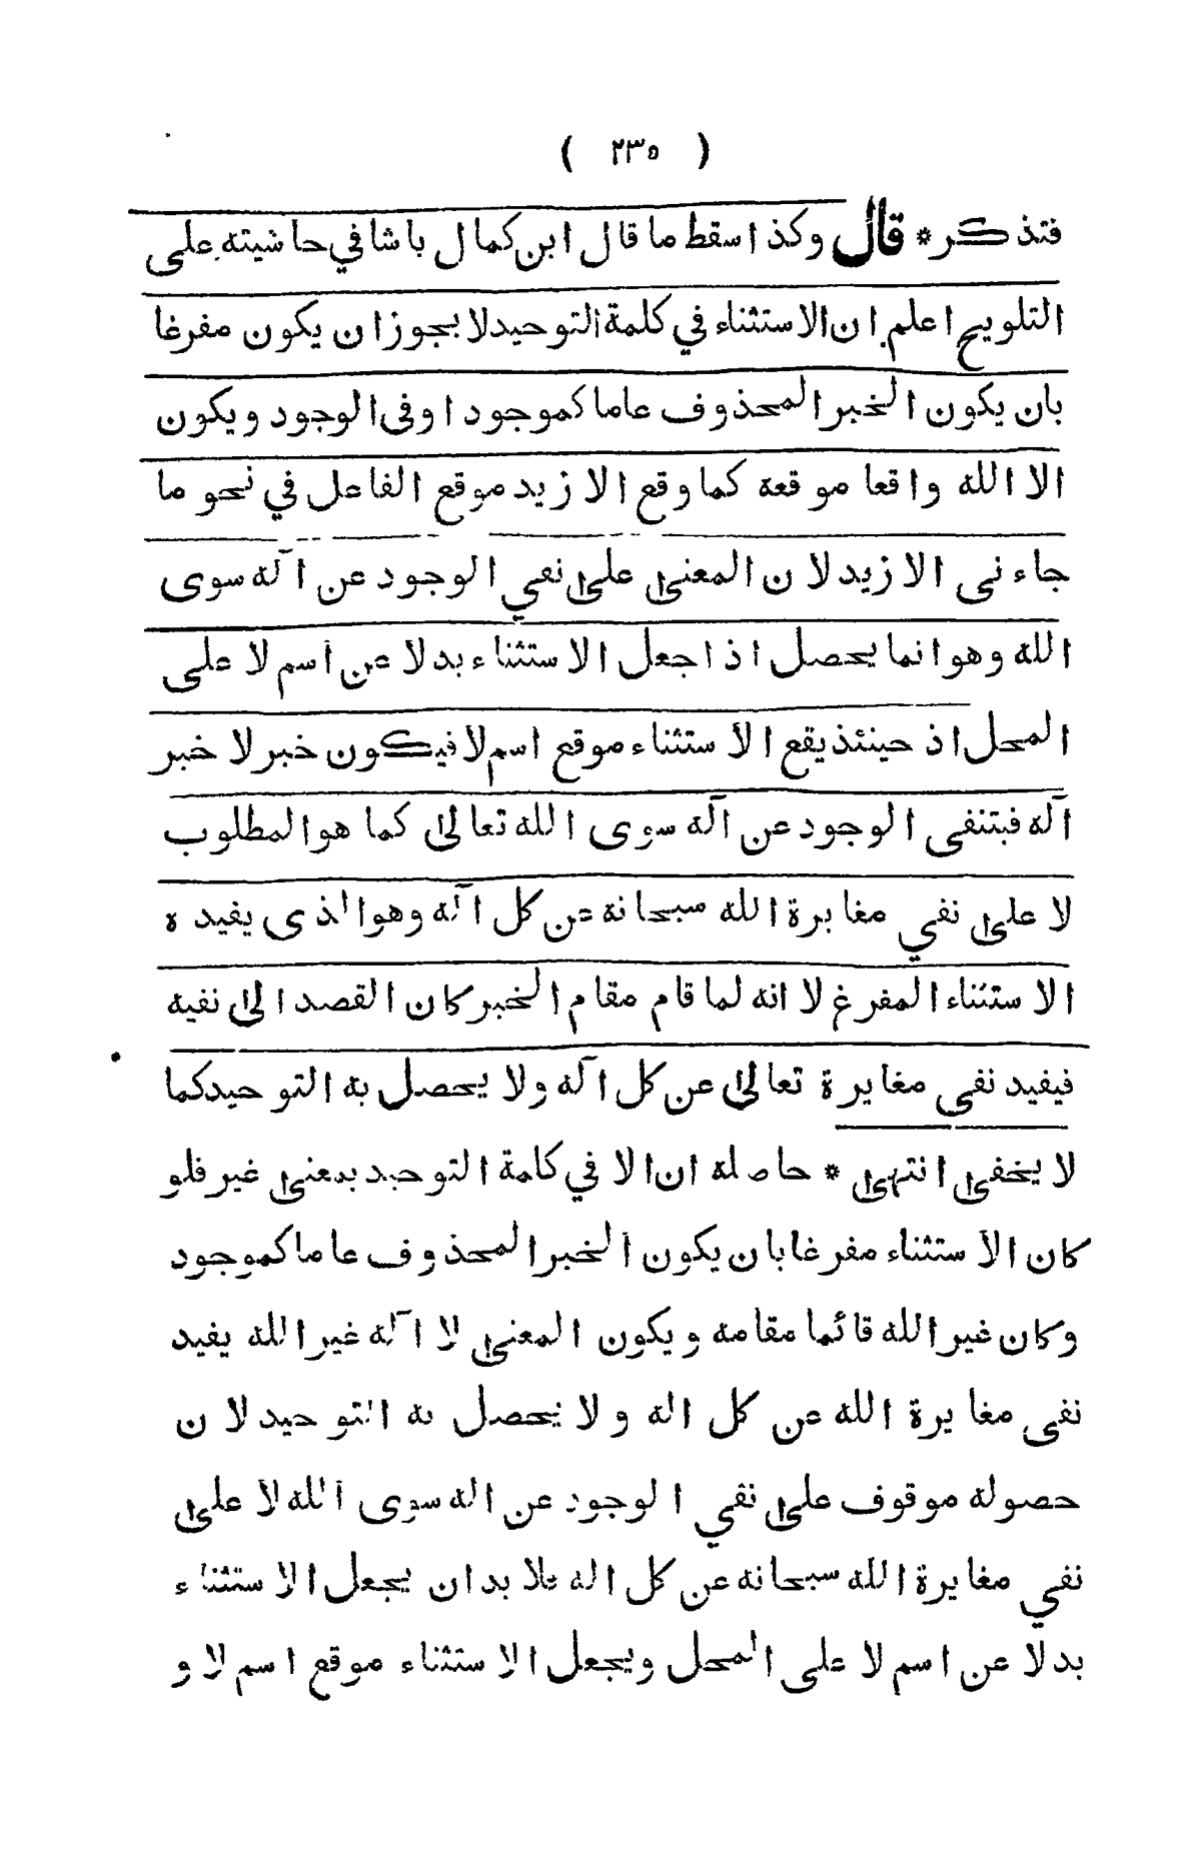 ( ٢٣٥ )
فتذكر * قال وكذا سقط ما قال ابن كمال باشا في حاشيته على
التلويح اعلم ان الاستثناء في كلمة التوحيد لا يجوز ان يكون مفرغا
بان يكون الخبر المحذوف عاما كموجود او فى الوجود ويكون
الا الله واقعا موقعه كما وقع الا زيد موقع الفاعل في نحو ما
جاءنى الا زيد لان المعنى على نفي الوجود عن آله سوى
الله وهو انما يحصل اذا جعل الاستثناء بدلا عن اسم لا على
المحل اذ حينئذ يقع الاستثناء موقع اسم لا فيكون خبر لا خبر
آله فينتفى الوجود عن آله سوى الله تعالى كما هو المطلوب
لا على نفي مغايرة الله سبحانه عن كل آله وهو الذى يفيده
الاستثناء المفرغ لانه لما قام مقام الخبر كان القصد الى نفيه
فيفيد نفى مغايرة تعالى عن كل آله ولا يحصل به التوحيد كما
لا يخفى انتهى * حاصله ان الا في كلمة التوحيد بمعنى غير فلو
كان الاستثناء مفرغا بان يكون الخبر المحذوف عاما كموجود
وكان غير الله قائما مقامه ويكون المعنى لا آله غير الله يفيد
نفى مغايرة الله عن كل اله ولا يحصل به التوحيد لان
حصوله موقوف على نفي الوجود عن اله سوى الله لا على
نفي مغايرة الله سبحانه عن كل اله فلا بد ان يجعل الاستثناء
بدلا عن اسم لا على المحل ويجعل الاستثناء موقع اسم لا و